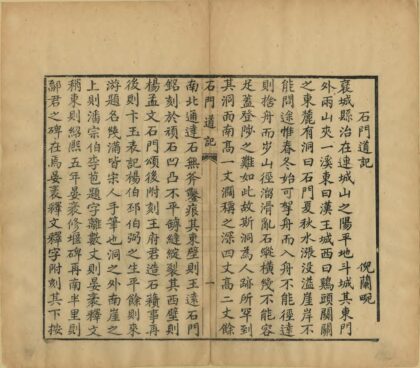 石門道記
倪蘭畹
襃城縣治在連城山之陽平地斗城其東門
外兩山夾一溪東曰漢王城西曰鷄頭關關
之東麓有洞曰石門夏秋水漲没溢崖岸不
能問途惟春冬始可拏舟而入舟不能徑達
則捨舟而步山徑溜滑亂石縱橫幾不能容
足蓋登陟之難如此故斯洞為人跡所罕到
其洞面南高一丈濶稱之深四丈高二丈餘
石門道記 一
南北通達石無斧鑿痕其東壁則王遠石門
銘刻於頑石凹凸不平罅縫綻裂其西壁則
楊孟文石門頌後附刻王府君造石積事再
後則卞玉表記楊伯邳伯弼之生平餘則來
游題名幾滿皆宋人手筆也洞之外南崖之
上則潘宗伯李苞題字離數丈則晏袤釋文
稍東則紹熙五年晏袤修堰碑再南半里則
鄐君之碑在焉晏袤釋文釋字附刻其下按